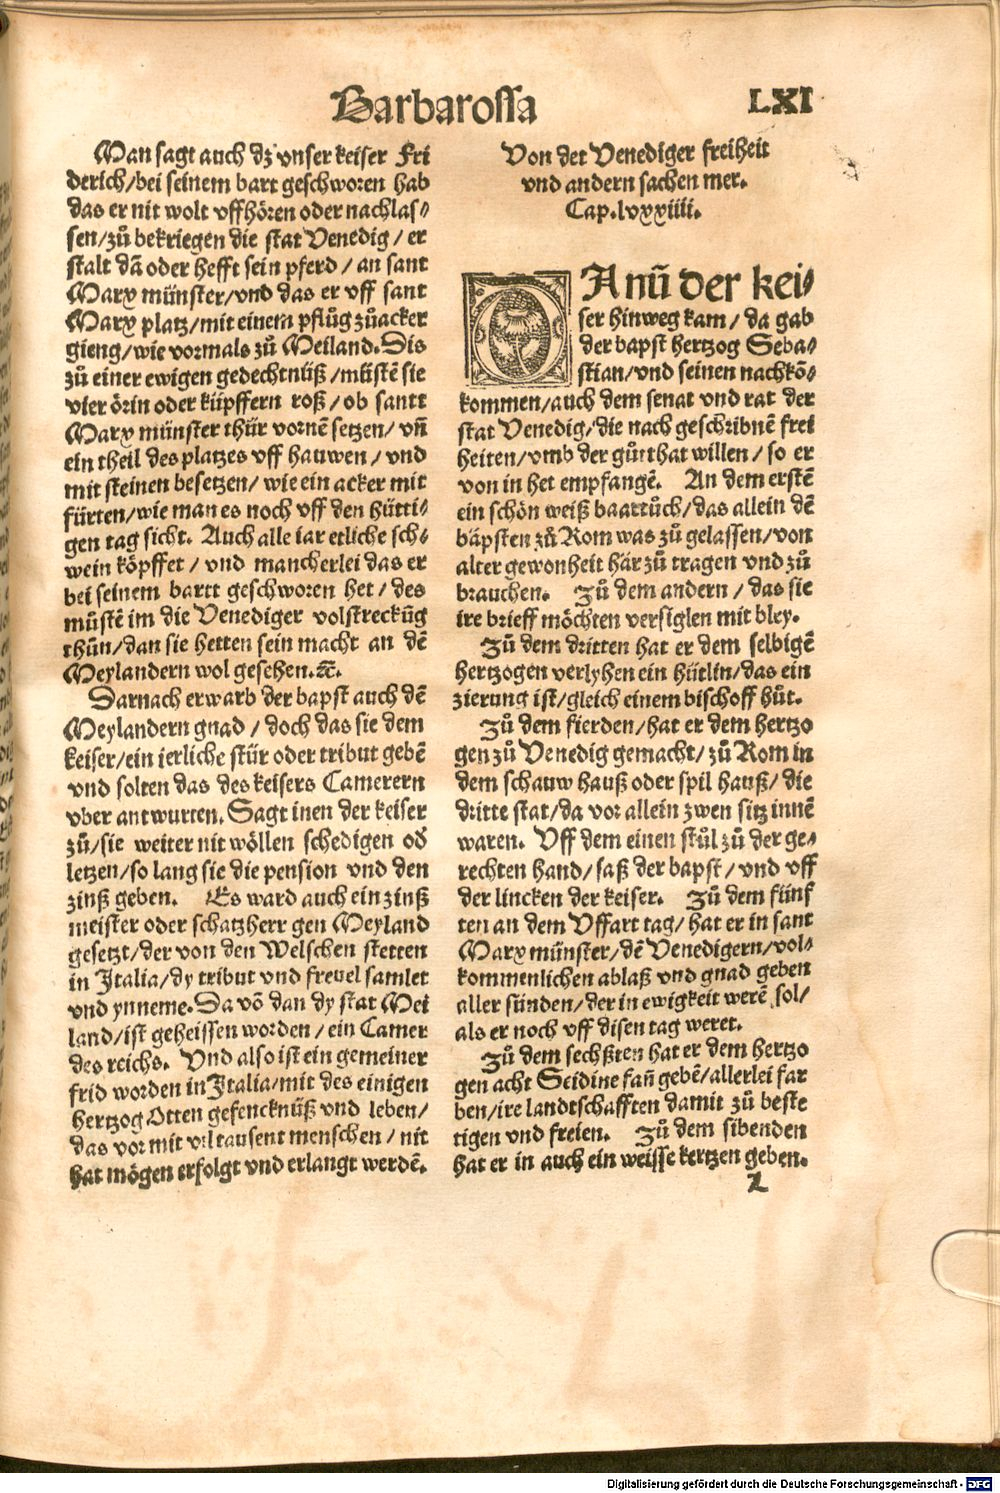 Barbarossa
LXI
Man sagt auch dz vnser keiser Fri
derich/bei seinem bart geschworen hab
das er nit wolt vffhören oder nachlas⸗
sen/zů bekriegen die stat Venedig/er
stalt dā oder hefft sein pferd/an sant
Marx münster/vnd das er vff sant
Marx platz/mit einem pflůg zůacker
gieng/wie vormals zů Meiland. Dis
zů einer ewigen gedechtnüß/můstē sie
vier örin oder küpffern roß/ob santt
Marx münster thür vornē setzen/vñ
ein theil des platzes vff hauwen/vnd
mit steinen besetzen/wie ein acker mit
fürten/wie man es noch vff den hütti⸗
gen tag sicht. Auch alle iar etliche sch⸗
wein köpffet/vnd mancherlei das er
bei seinem bartt geschworen het/des
můstē im die Venediger volstreckūg
thůn/dan sie hetten sein macht an dē
Meylandern wol gesehen.⁊c̄.
Darnach erwarb der bapst auch dē
Meylandern gnad/doch das sie dem
keiser/ein ierliche stür oder tribut gebē
vnd solten das des keisers Camerern
vber antwurten. Sagt inen der keiser
zů/sie weiter nit wöllen schedigen od̕
letzen/so lang sie die pension vnd den
zinß geben. Es ward auch ein zinß
meister oder schatzherr gen Meyland
gesetzt/der von den Welschen stetten
in Italia/dy tribut vnd freuel samlet
vnd ynneme. Da vō dan dy stat Mei
land/ist geheissen worden/ein Camer
des reichs. Vnd also ist ein gemeiner
frid worden in Italia/mit des einigen
hertzog Otten gefencknüß vnd leben/
das vor mit vil tausent menschen/nit
hat mögen erfolgt vnd erlangt werdē.
Von det Venediger freiheit
vnd andern sachen mer.
Cap.lvxxiiii.
DA nū der kei⸗
ser hinweg kam/da gab
der bapst hertzog Seba⸗
stian/vnd seinen nachkō⸗
kommen/auch dem senat vnd rat der
stat Venedig/die nach geschribnē frei
heiten/vmb der gůtthat willen/so er
von in het empfangē. An dem erstē
ein schön weiß baartůch/das allein dē
bäpsten zů Rom was zů gelassen/von
alter gewonheit här zů tragen vnd zů
brauchen. Zů dem andern/das sie
ire brieff möchten versiglen mit bley.
Zů dem dritten hat er dem selbigē
hertzogen verlyhen ein hütlin/das ein
zierung ist/gleich einem bischoff hůt.
Zů dem fierden/hat er dem hertzo
gen zů Venedig gemacht/zů Rom in
dem schauw hauß oder spil hauß/die
dritte stat/da vor allein zwen sitz innē
waren. Vff dem einen stůl zů der ge⸗
rechten hand/saß der bapst/vnd vff
der lincken der keiser. Zů dem fünf
ten an dem Vffart tag/hat er in sant
Marx münster/dē Venedigern/vol⸗
kommenlichen ablaß vnd gnad geben
aller sünden/der in ewigkeit werē sol/
als er noch vff disen tag weret.
Zů dem sechßten hat er dem hertzo
gen acht Seidine fañ gebē/allerlei far
ben/ire landtschafften damit zů beste
tigen vnd freien. Zů dem sibenden
hat er in auch ein weisse kertzen geben.
L
Digitalisierung gefördert durch die Deutsche Forschungsgemeinschaft - DFG